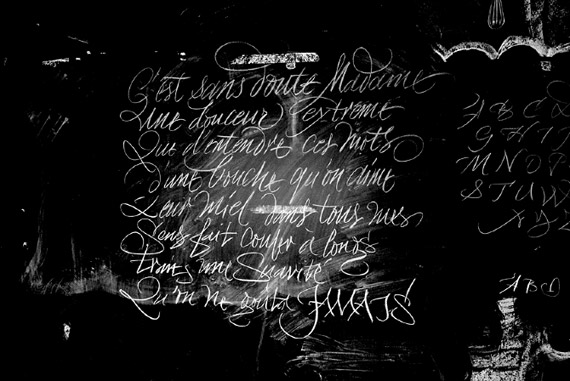 C'est sans doute Madame
Une douceur extrême
Que d'entendre ces mots
d'une bouche qu'on aime
Leur miel dans tous mes
Sens fait couler a longs
traits une Suavité
Qu'on ne goûta JAMAIS
A B C
G H I J
M N O P
S T U W
X Y Z
A B C D